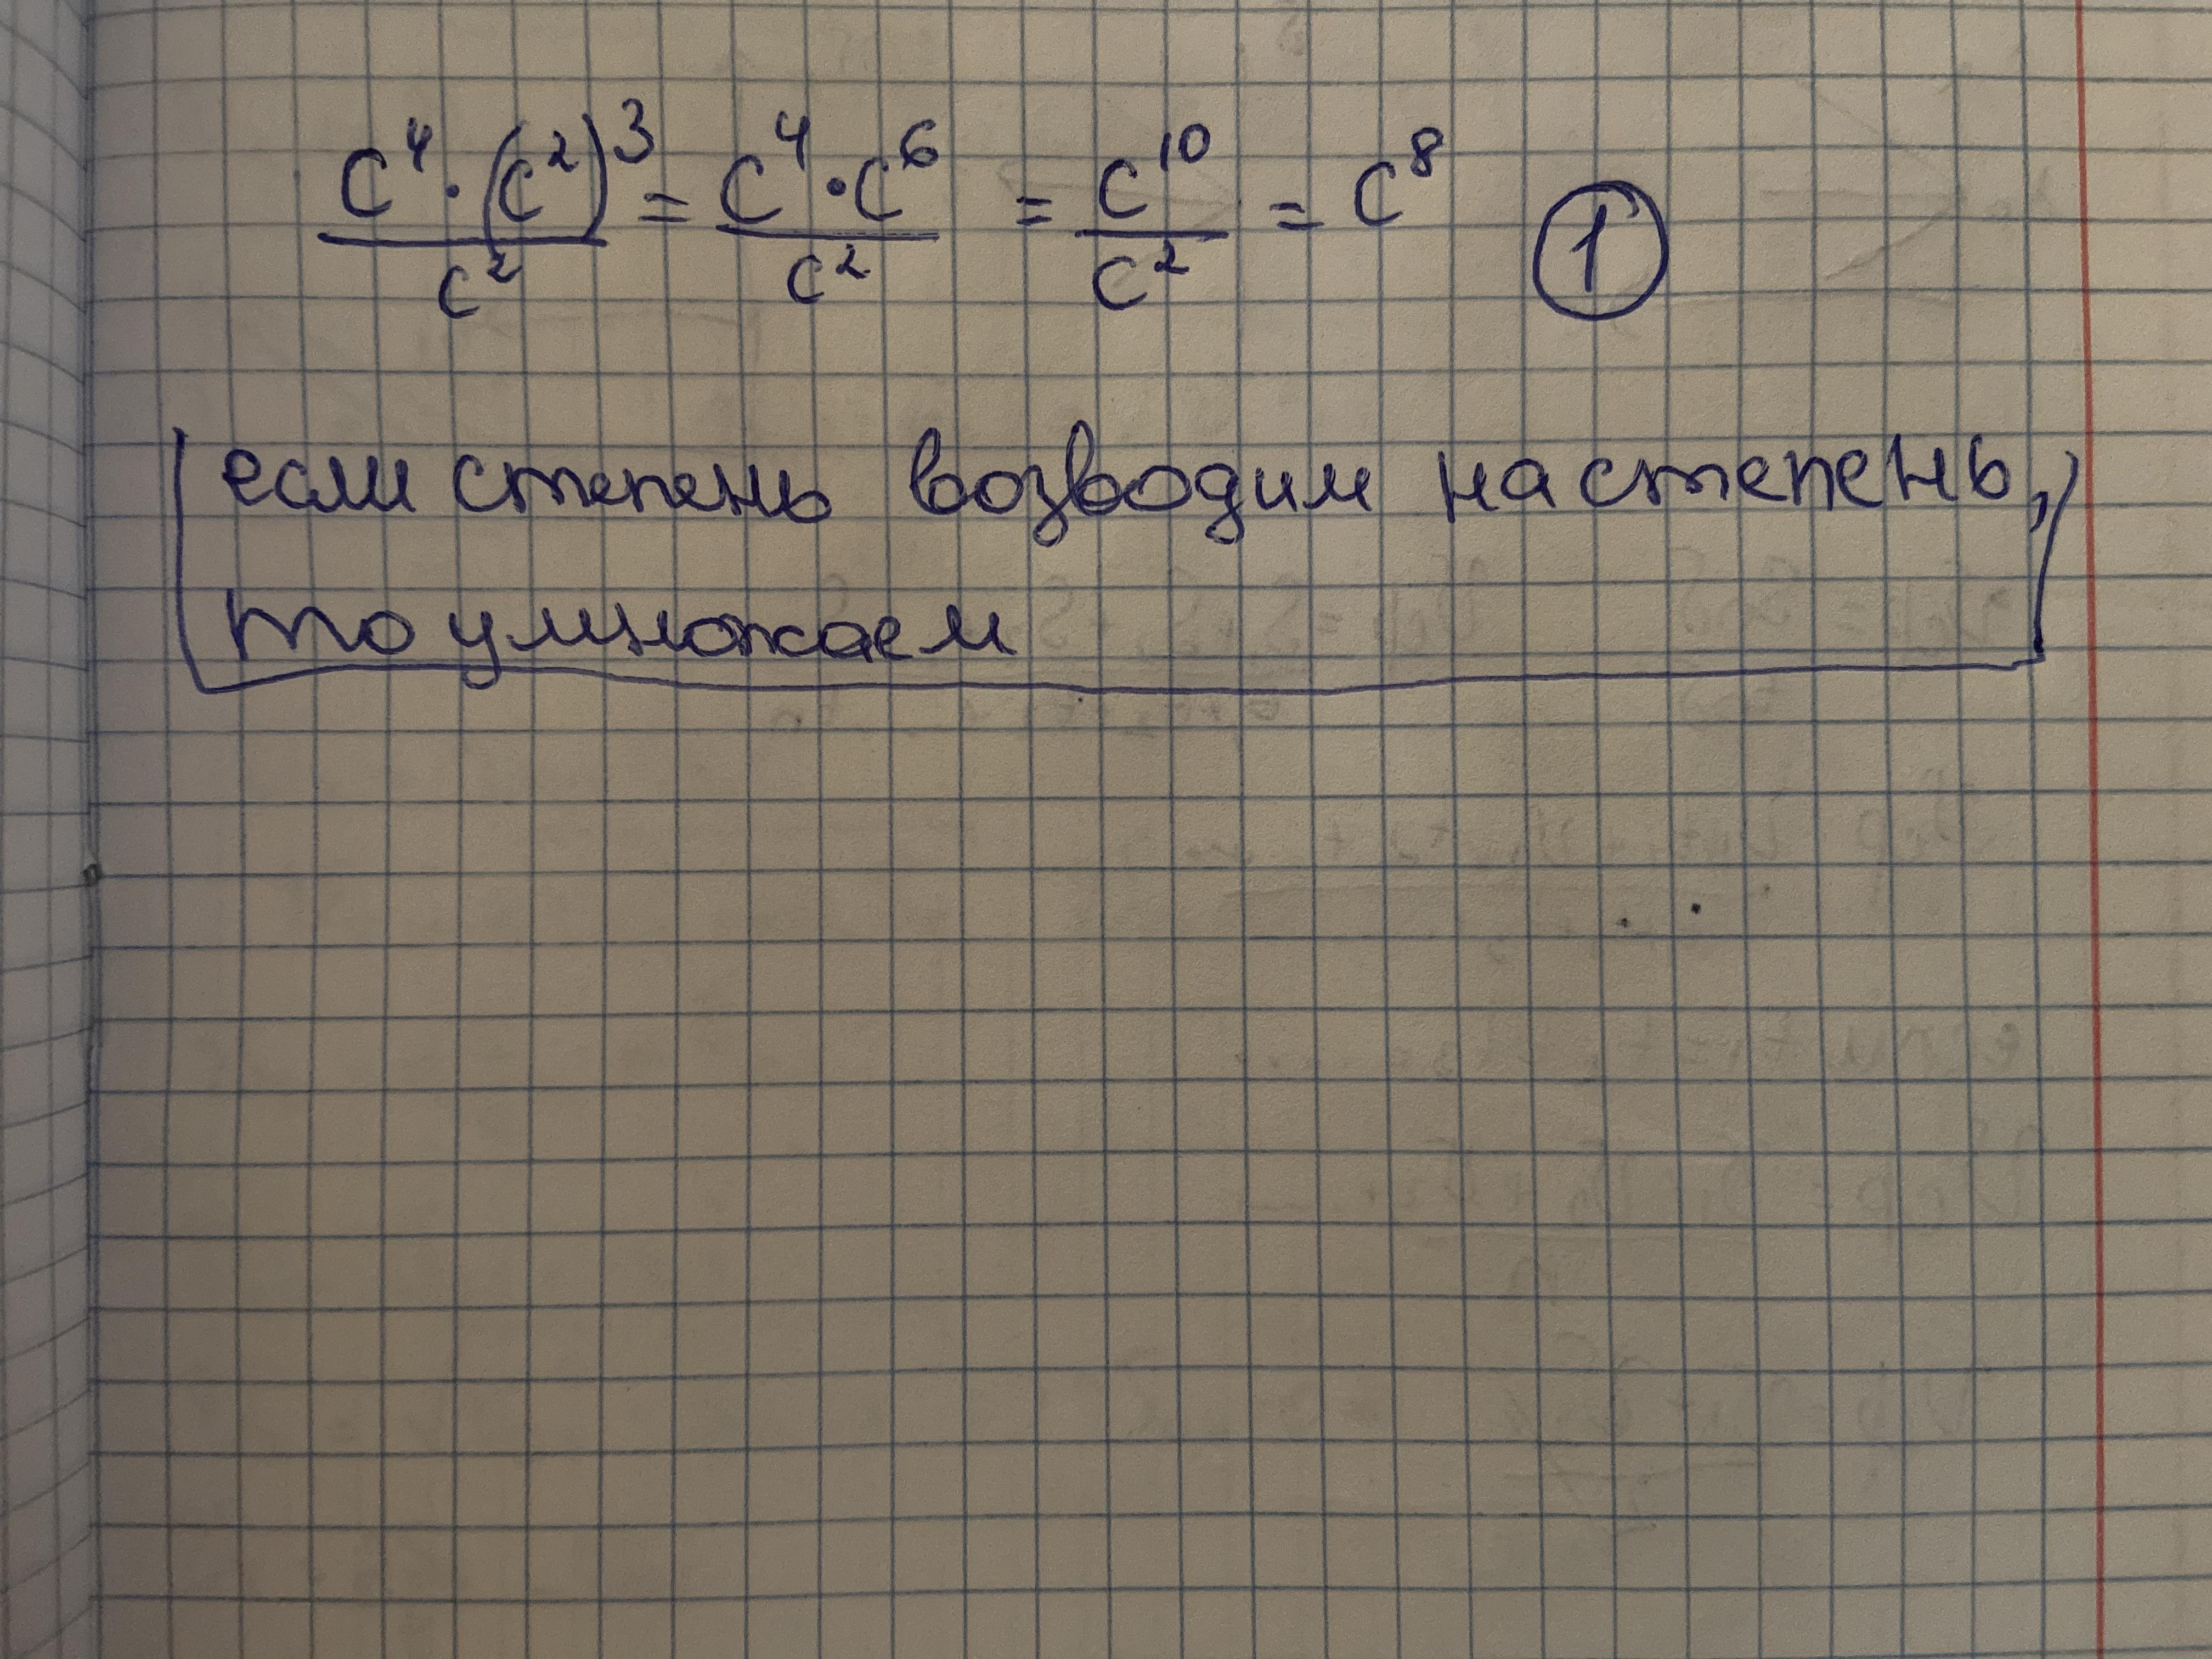 C⁴ · (C²)³ / C² = C⁴ · C⁶ / C² = C¹⁰ / C² = C⁸ ①
если степень возводим на степень,
то умножаем